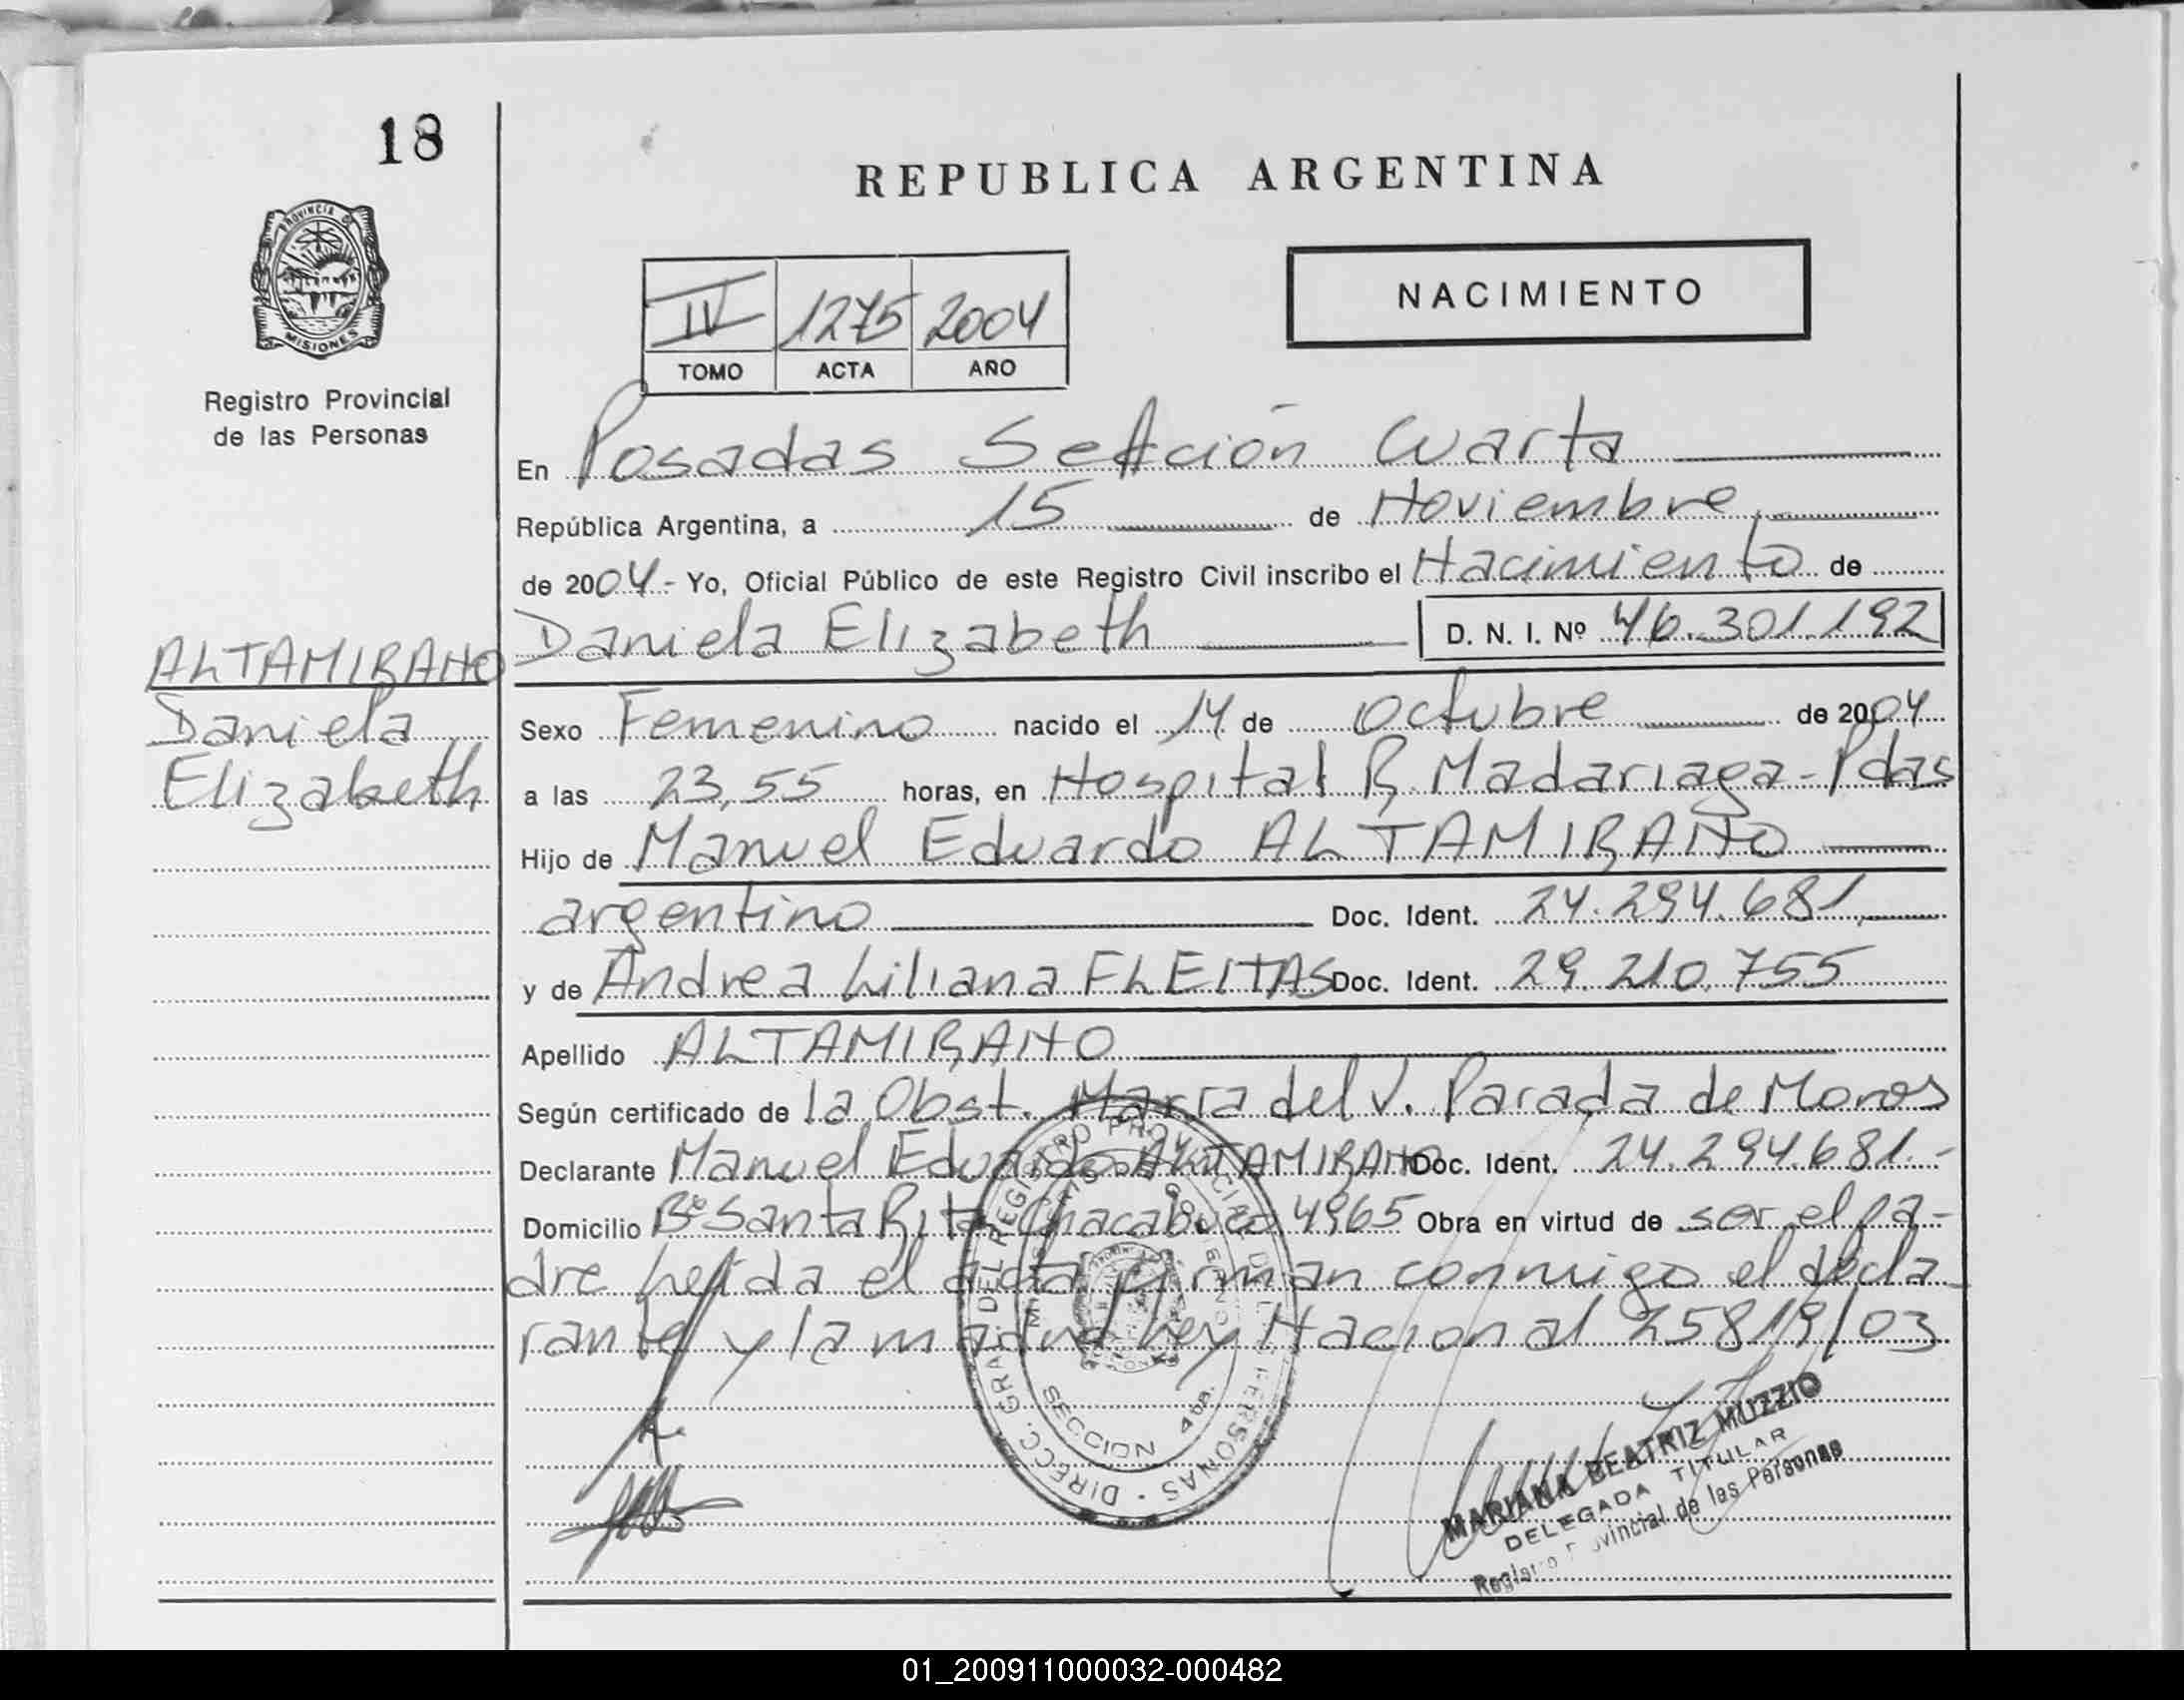 18
REPUBLICA ARGENTINA
PROVINCIA DE
MISIONES
Registro Provincial
de las Personas
NACIMIENTO
IV 1275 2004
TOMO ACTA AÑO
En Posadas Sección Cuarta
República Argentina, a 15 de Noviembre
de 2004.- Yo, Oficial Público de este Registro Civil inscribo el Nacimiento de
Daniela Elizabeth D. N. I. Nº 46.301.192
ALTAMIRANO
Daniela
Elizabeth
Sexo Femenino nacido el 14 de Octubre de 2004
a las 23,55 horas, en Hospital R. Madariaga - Pdas
Hijo de Manuel Eduardo ALTAMIRANO
argentino Doc. Ident. 24.294.681
y de Andrea Liliana FLEITAS Doc. Ident. 29.210.755
Apellido ALTAMIRANO
Según certificado de la Obst. María del V. Parada de Monos
Declarante Manuel Eduardo ALTAMIRANO Doc. Ident. 24.294.681.-
Domicilio Bº Santa Rita Chacabuco 4965 Obra en virtud de ser el pa-
dre leída el acta firman conmigo el decla-
rante y la madre Ley Nacional 25819/03
DIRECC. GRAL. DEL REGISTRO PROVINCIAL DE LAS PERSONAS
SECCION 4ta.
MARIANA BEATRIZ MUZZIO
DELEGADA TITULAR
Registro Provincial de las Personas
01_200911000032-000482